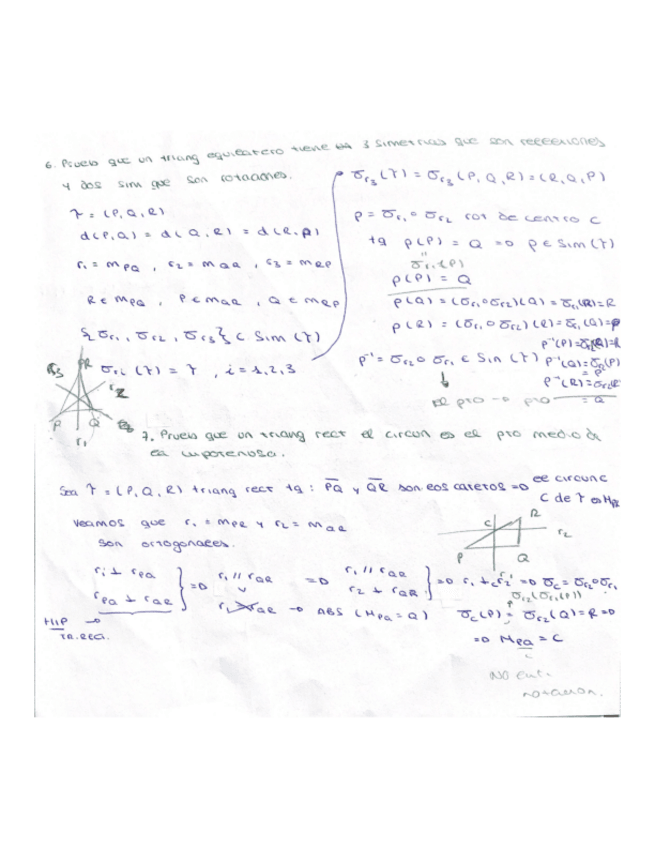 6. Prueba que un triang equilatero tiene 3 simetrias que son reflexiones
y dos sim que son rotaciones.
T = (P, Q, R)
d(P,Q) = d(Q,R) = d(R,P)
r₁ = m_PQ , r₂ = m_QR , r₃ = m_RP
R ∈ m_PQ , P ∈ m_QR , Q ∈ m_RP
{σr₁, σr₂, σr₃} ⊂ Sim (T)
σri (T) = T , i = 1,2,3
R
r₃
r₂
P
Q
r₁
σr₃(T) = σr₃(P, Q, R) = (R, Q, P)
ρ = σr₁ ∘ σr₂ rot de centro C
tq ρ(P) = Q => ρ ∈ Sim (T)
σr₁(P)
ρ(P) = Q
ρ(Q) = (σr₁∘σr₂)(Q) = σr₁(R) = R
ρ(R) = (σr₁∘σr₂)(R) = σr₁(Q) = P
ρ⁻¹ = σr₂∘σr₁ ∈ Sim (T)
ρ⁻¹(P) = σr₂(Q) = R
ρ⁻¹(Q) = σr₂(P) = P
ρ⁻¹(R) = σr₂R = Q
El pto → pto
7. Prueba que un triang rect el circun es el pto medio de
la hipotenusa.
Sea T = (P, Q, R) triang rect tq : PQ y QR son los catetos => el circunc
C de T es M_PR
Veamos que r₁ = m_PQ y r₂ = m_QR
son ortogonales.
C
R
r₂
P
Q
r₁
r₁ ⊥ r_PQ
r_PQ ⊥ r_QR
} => r₁ // r_QR
=>
r₁ // r_QR
r₂ ⊥ r_QR
} => r₁ ⊥_C r₂ => σ_C = σr₂∘σr₁
→ ABS (M_PQ = Q)
σr₂(σr₁(P))
σ_C(P) = σr₂(Q) = R =>
=> M_PR = C
HIP →
T.a. rect.
NO
notacion.